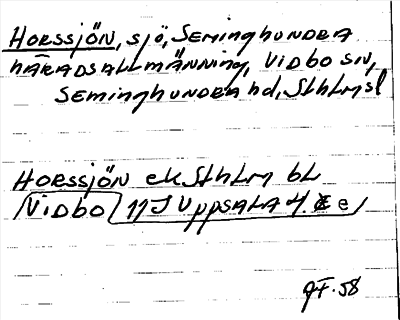 Horssjön, sjö, Seminghundra
häradsallmänning, Vidbo sn,
Seminghundra hd, Sthlms l
Horssjön ek Sthlm bl
Vidbo 11J Uppsala 4. e
GF. 58